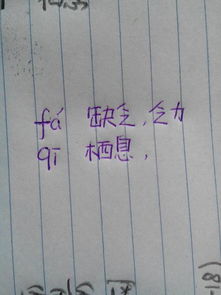 fá 缺乏,乏力
qī 栖息,